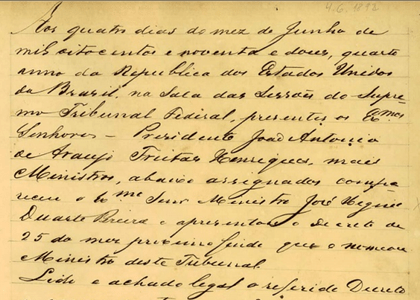 4.6.1892
Aos quatro dias do mez de Junho de
mil oitocentos e noventa e dous, quarto
anno da Republica dos Estados Unidos
do Brazil, na Sala das Sessões do Supre-
mo Tribunal Federal, presentes os Exmos
Senhores - Presidente João Antonio
de Araujo Freitas Henriques, mais
Ministros, abaixo assignados, compa-
receu o Exmo Snr Ministro José Hygino
Duarte Pereira e apresentou o Decreto de
25 do mez proximo findo que o nomeou
Ministro deste Tribunal.
Lido e achado legal o referido Decreto